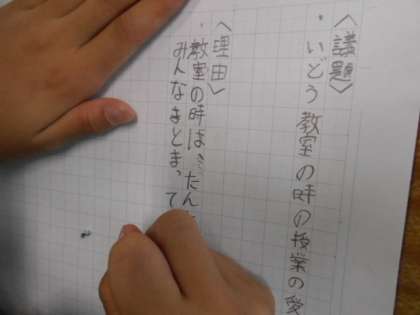 〈議題〉
・いどう教室の時の授業の愛
〈理由〉
・教室の時は、きたん
みんなまとまって